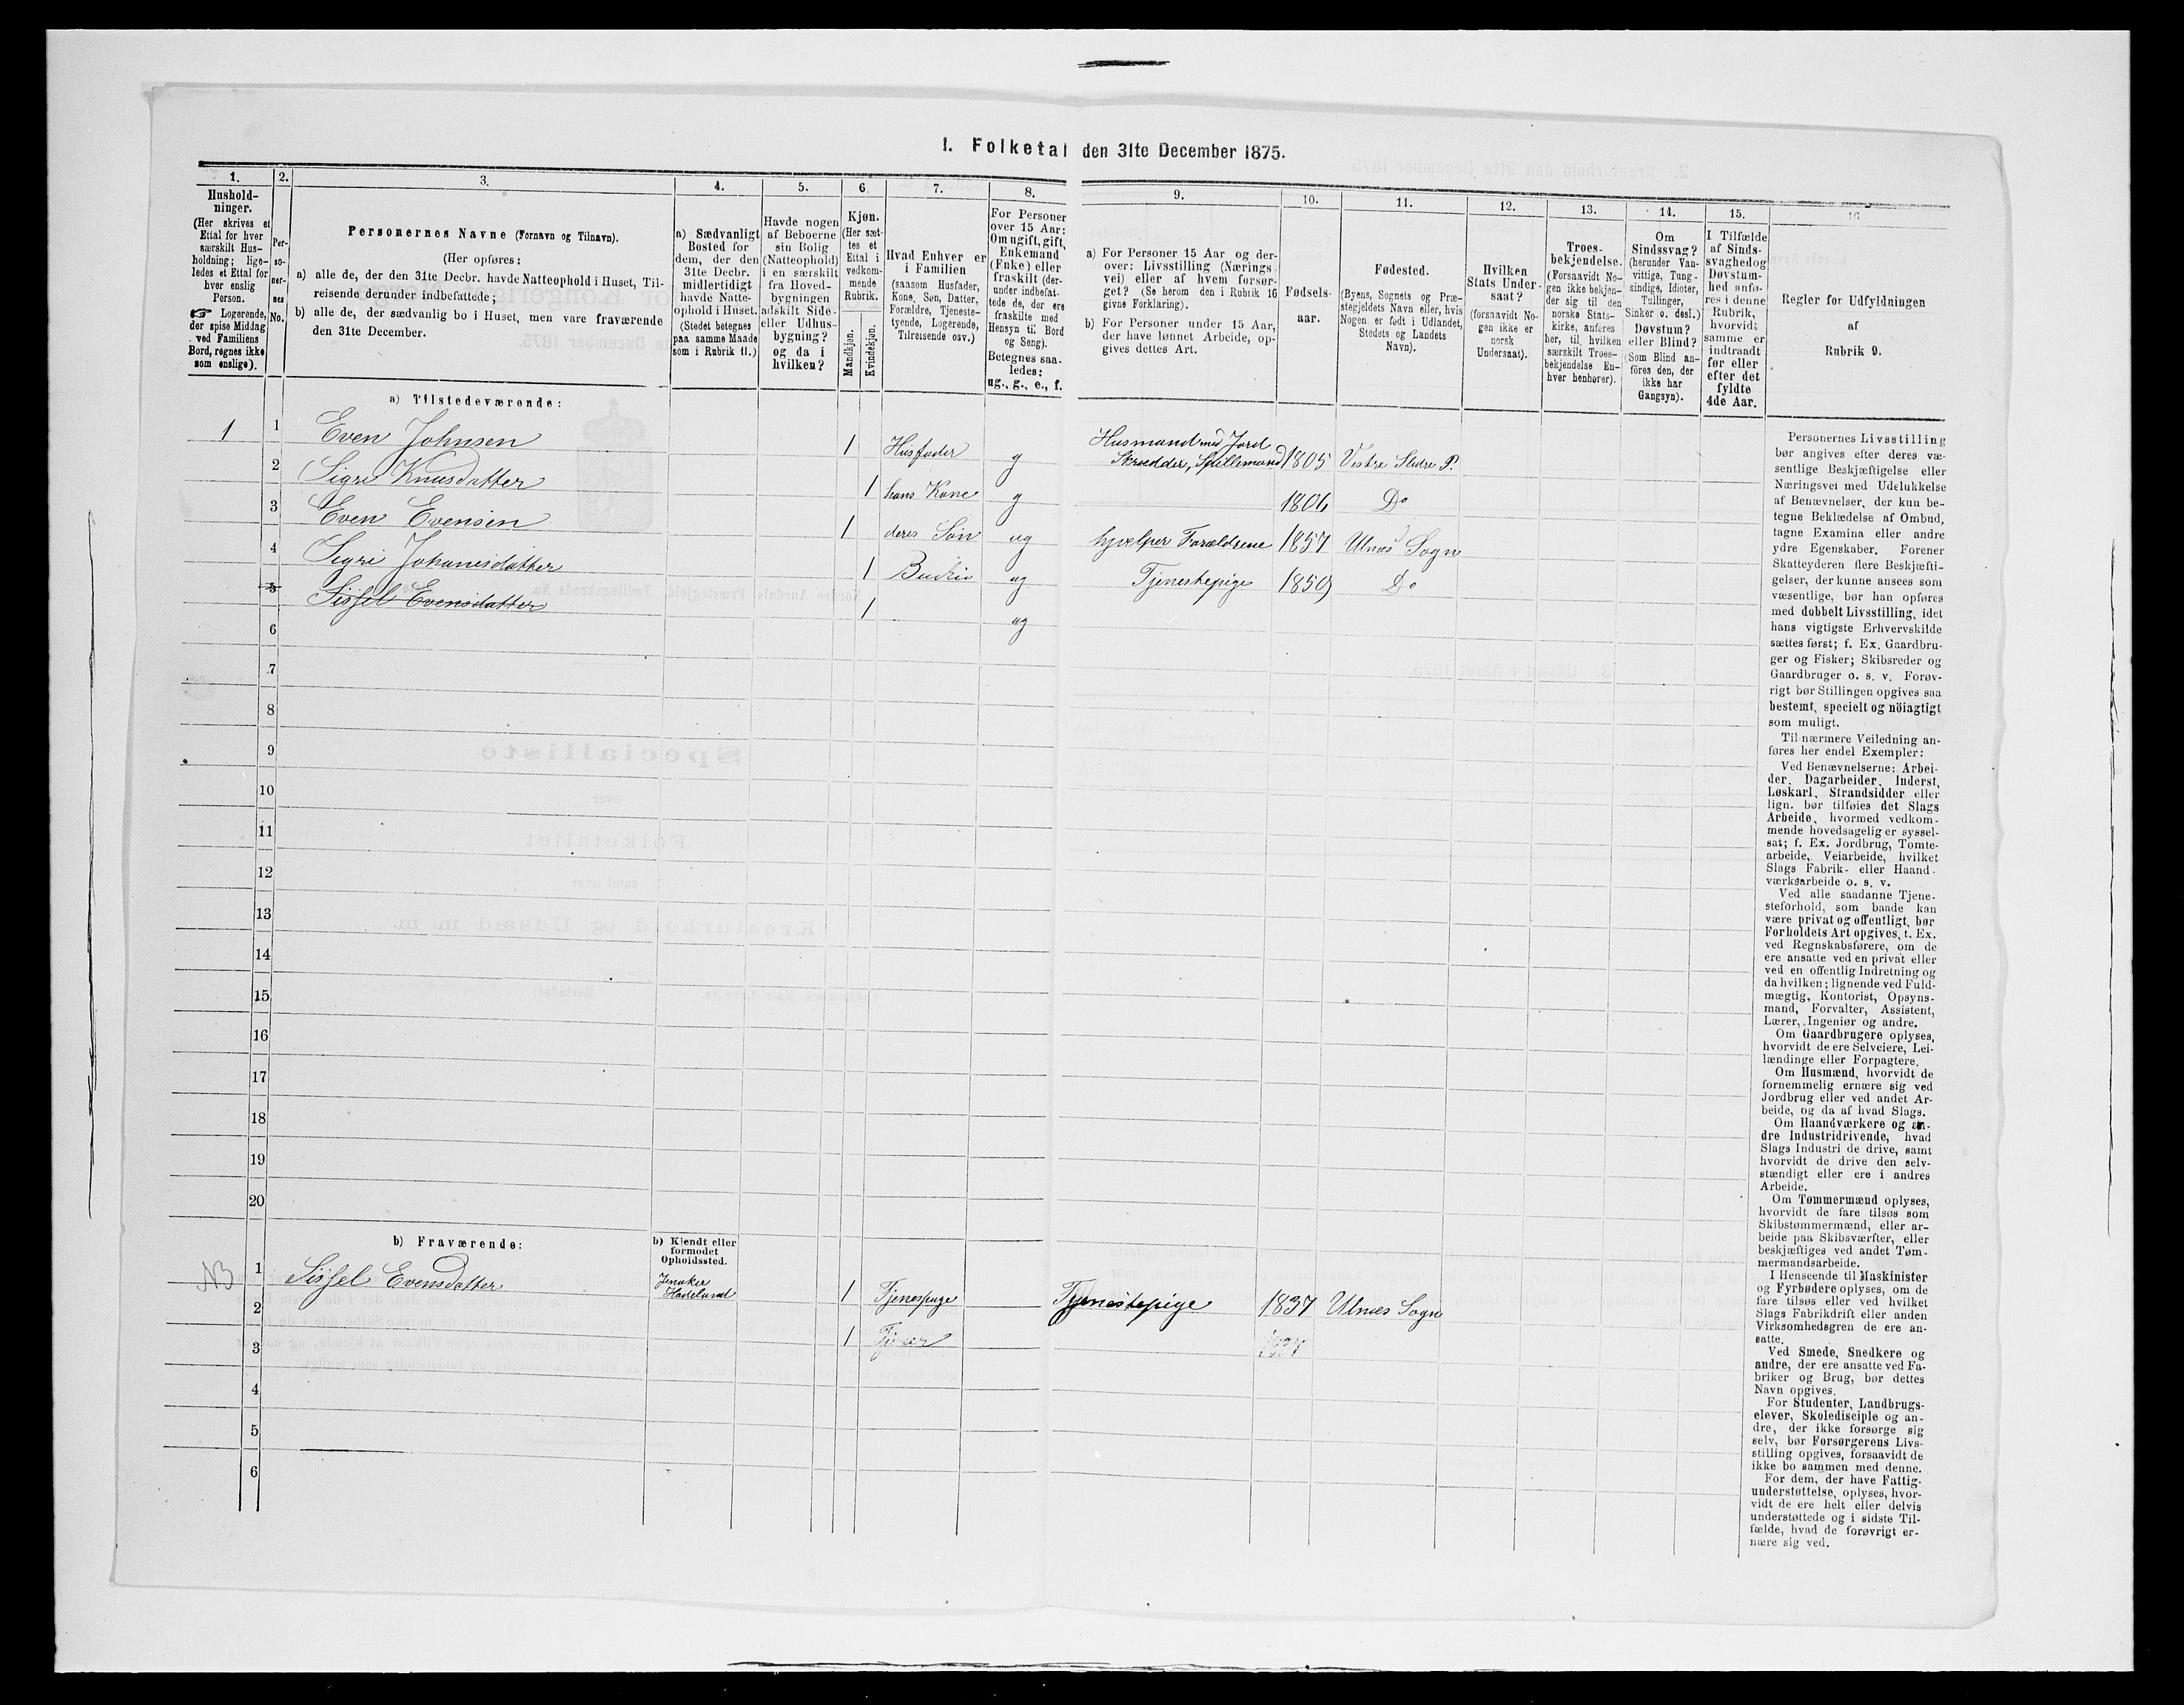 I. Folketal den 31te December 1875.
1.
Hushold-
ninger.
(Her skrives et
Ettal for hver
særskilt Hus-
holdning; lige-
ledes et Ettal for
hver enslig
Person.
☞ Logerende,
der spise Middag
ved Familiens
Bord, regnes ikke
som enslige).
2.
Per-
so-
ner-
nes
No.
3.
Personernes Navne (Fornavn og Tilnavn).
(Her opføres:
a) alle de, der den 31te Decbr. havde Natteophold i Huset, Til-
reisende derunder indbefattede;
b) alle de, der sædvanlig bo i Huset, men vare fraværende
den 31te December.
4.
a) Sædvanligt
Bosted for
dem, der den
31te Decbr.
midlertidigt
havde Natte-
ophold i Huset.
(Stedet betegnes
paa samme Maade
som i Rubrik 11.)
5.
Havde nogen
af Beboerne
sin Bolig
(Natteophold)
i en særskilt
fra Hoved-
bygningen
adskilt Side-
eller Udhus-
bygning?
og da i
hvilken?
6.
Kjøn.
(Her sæt-
tes et
Ettal i
vedkom-
mende
Rubrik.
Mandkjøn.
Kvindekjøn.
7.
Hvad Enhver er
i Familien
(saasom Husfader,
Kone, Søn, Datter,
Forældre, Tjeneste-
tyende, Logerende,
Tilreisende osv.)
8.
For Personer
over 15 Aar:
Om ugift, gift,
Enkemand
(Enke) eller
fraskilt (der-
under indbefat-
tede de, der ere
fraskilte med
Hensyn til Bord
og Seng).
Betegnes saa-
ledes:
ug., g., e., f.
9.
a) For Personer 15 Aar og der-
over: Livsstilling (Nærings-
vei) eller af hvem forsør-
get? (Se herom den i Rubrik 16
givne Forklaring).
b) For Personer under 15 Aar,
der have lønnet Arbeide, op-
gives dettes Art.
10.
Fødsels-
aar.
11.
Fødested.
(Byens, Sognets og Præ-
stegjeldets Navn eller, hvis
Nogen er født i Udlandet,
Stedets og Landets
Navn).
12.
Hvilken
Stats Under-
saat?
(forsaavidt No-
gen ikke er
norsk
Undersaat).
13.
Troes-
bekjendelse.
(Forsaavidt No-
gen ikke bekjen-
der sig til den
norske Stats-
kirke, anføres
her, til hvilken
særskilt Troes-
bekjendelse En-
hver henhører).
14.
Om
Sindssvag?
(herunder Van-
vittige, Tung-
sindige, Idioter,
Tullinger,
Sinker o. desl.)
Døvstum?
eller Blind?
(Som Blind an-
føres den, der
ikke har
Gangsyn).
15.
I Tilfælde
af Sinds-
svaghed og
Døvstum-
hed anfø-
res i denne
Rubrik,
hvorvidt
samme er
indtraadt
før eller
efter det
fyldte
4de Aar.
16
Regler for Udfyldningen
af
Rubrik 9.
a) Tilstedeværende:
1 1 Even Johnsen 1 Husfader g Husmand med Jord
Skrædder, Spillemand 1805 Vestre Slidre P.
2 Sigri Knusdatter 1 hans Kone g 1806 Do
3 Even Evensen 1 deres Søn ug hjælper Forældrene 1857 Ulnes Sogn
4 Sigri Johanisdatter 1 ug Tjenestepige 1859 Do
5 Sissel Evensdatter 1 ug
6
7
8
9
10
11
12
13
14
15
16
17
18
19
20
b) Fraværende:
b) Kjendt eller
formodet
Opholdssted.
NB 1 Sissel Evensdatter Jevnaker
Hadeland 1 Tjenespige Tjenestepige 1837 Ulnes Sogn
2 1
3
4
5
6
Personernes Livsstilling
bør angives efter deres væ-
sentlige Beskjæftigelse eller
Næringsvei med Udelukkelse
af Benævnelser, der kun be-
tegne Beklædelse af Ombud,
tagne Examina eller andre
ydre Egenskaber. Forener
Skatteyderen flere Beskjæfti-
gelser, der kunne ansees som
væsentlige, bør han opføres
med dobbelt Livsstilling, idet
hans vigtigste Erhvervskilde
sættes først; f. Ex. Gaardbru-
ger og Fisker; Skibsreder og
Gaardbruger o. s. v. Forøv-
rigt bør Stillingen opgives saa
bestemt, specielt og nöiagtigt
som muligt.
Til nærmere Veiledning an-
føres her endel Exempler:
Ved Benævnelserne: Arbei-
der, Dagarbeider, Inderst,
Løskarl, Strandsidder eller
lign. bør tilføies det Slags
Arbeide, hvormed vedkom-
mende hovedsagelig er syssel-
sat; f. Ex. Jordbrug, Tomte-
arbeide, Veiarbeide, hvilket
Slags Fabrik- eller Haand-
værksarbeide o. s. v.
Ved alle saadanne Tjene-
steforhold, som baade kan
være privat og offentligt, bør
Forholdets Art opgives, t. Ex.
ved Regnskabsførere, om de
ere ansatte ved en privat eller
ved en offentlig Indretning og
da hvilken; lignende ved Fuld-
mægtig, Kontorist, Opsyns-
mand, Forvalter, Assistent,
Lærer, Ingeniør og andre.
Om Gaardbrugere oplyses,
hvorvidt de ere Selveiere, Lei-
lændinge eller Forpagtere.
Om Husmænd, hvorvidt de
fornemmelig ernære sig ved
Jordbrug eller ved andet Ar-
beide, og da af hvad Slags.
Om Haandværkere og an-
dre Industridrivende, hvad
Slags Industri de drive, samt
hvorvidt de drive den selv-
stændigt eller ere i andres
Arbeide.
Om Tømmermænd oplyses,
hvorvidt de fare tilsøs som
Skibstømmermænd, eller ar-
beide paa Skibsværfter, eller
beskjæftiges ved andet Tøm-
mermandsarbeide.
I Henseende til Maskinister
og Fyrbødere oplyses, om de
fare tilsøs eller ved hvilket
Slags Fabrikdrift eller anden
Virksomhedsgren de ere an-
satte.
Ved Smede, Snedkere og
andre, der ere ansatte ved Fa-
briker og Brug, bør dettes
Navn opgives.
For Studenter, Landbrugs-
elever, Skoledisciple og an-
dre, der ikke forsørge sig
selv, bør Forsørgerens Livs-
stilling opgives, forsaavidt de
ikke bo sammen med denne.
For dem, der have Fattig-
understøttelse, oplyses, hvor-
vidt de ere helt eller delvis
understøttede og i sidste Til-
fælde, hvad de forøvrigt er-
nære sig ved.